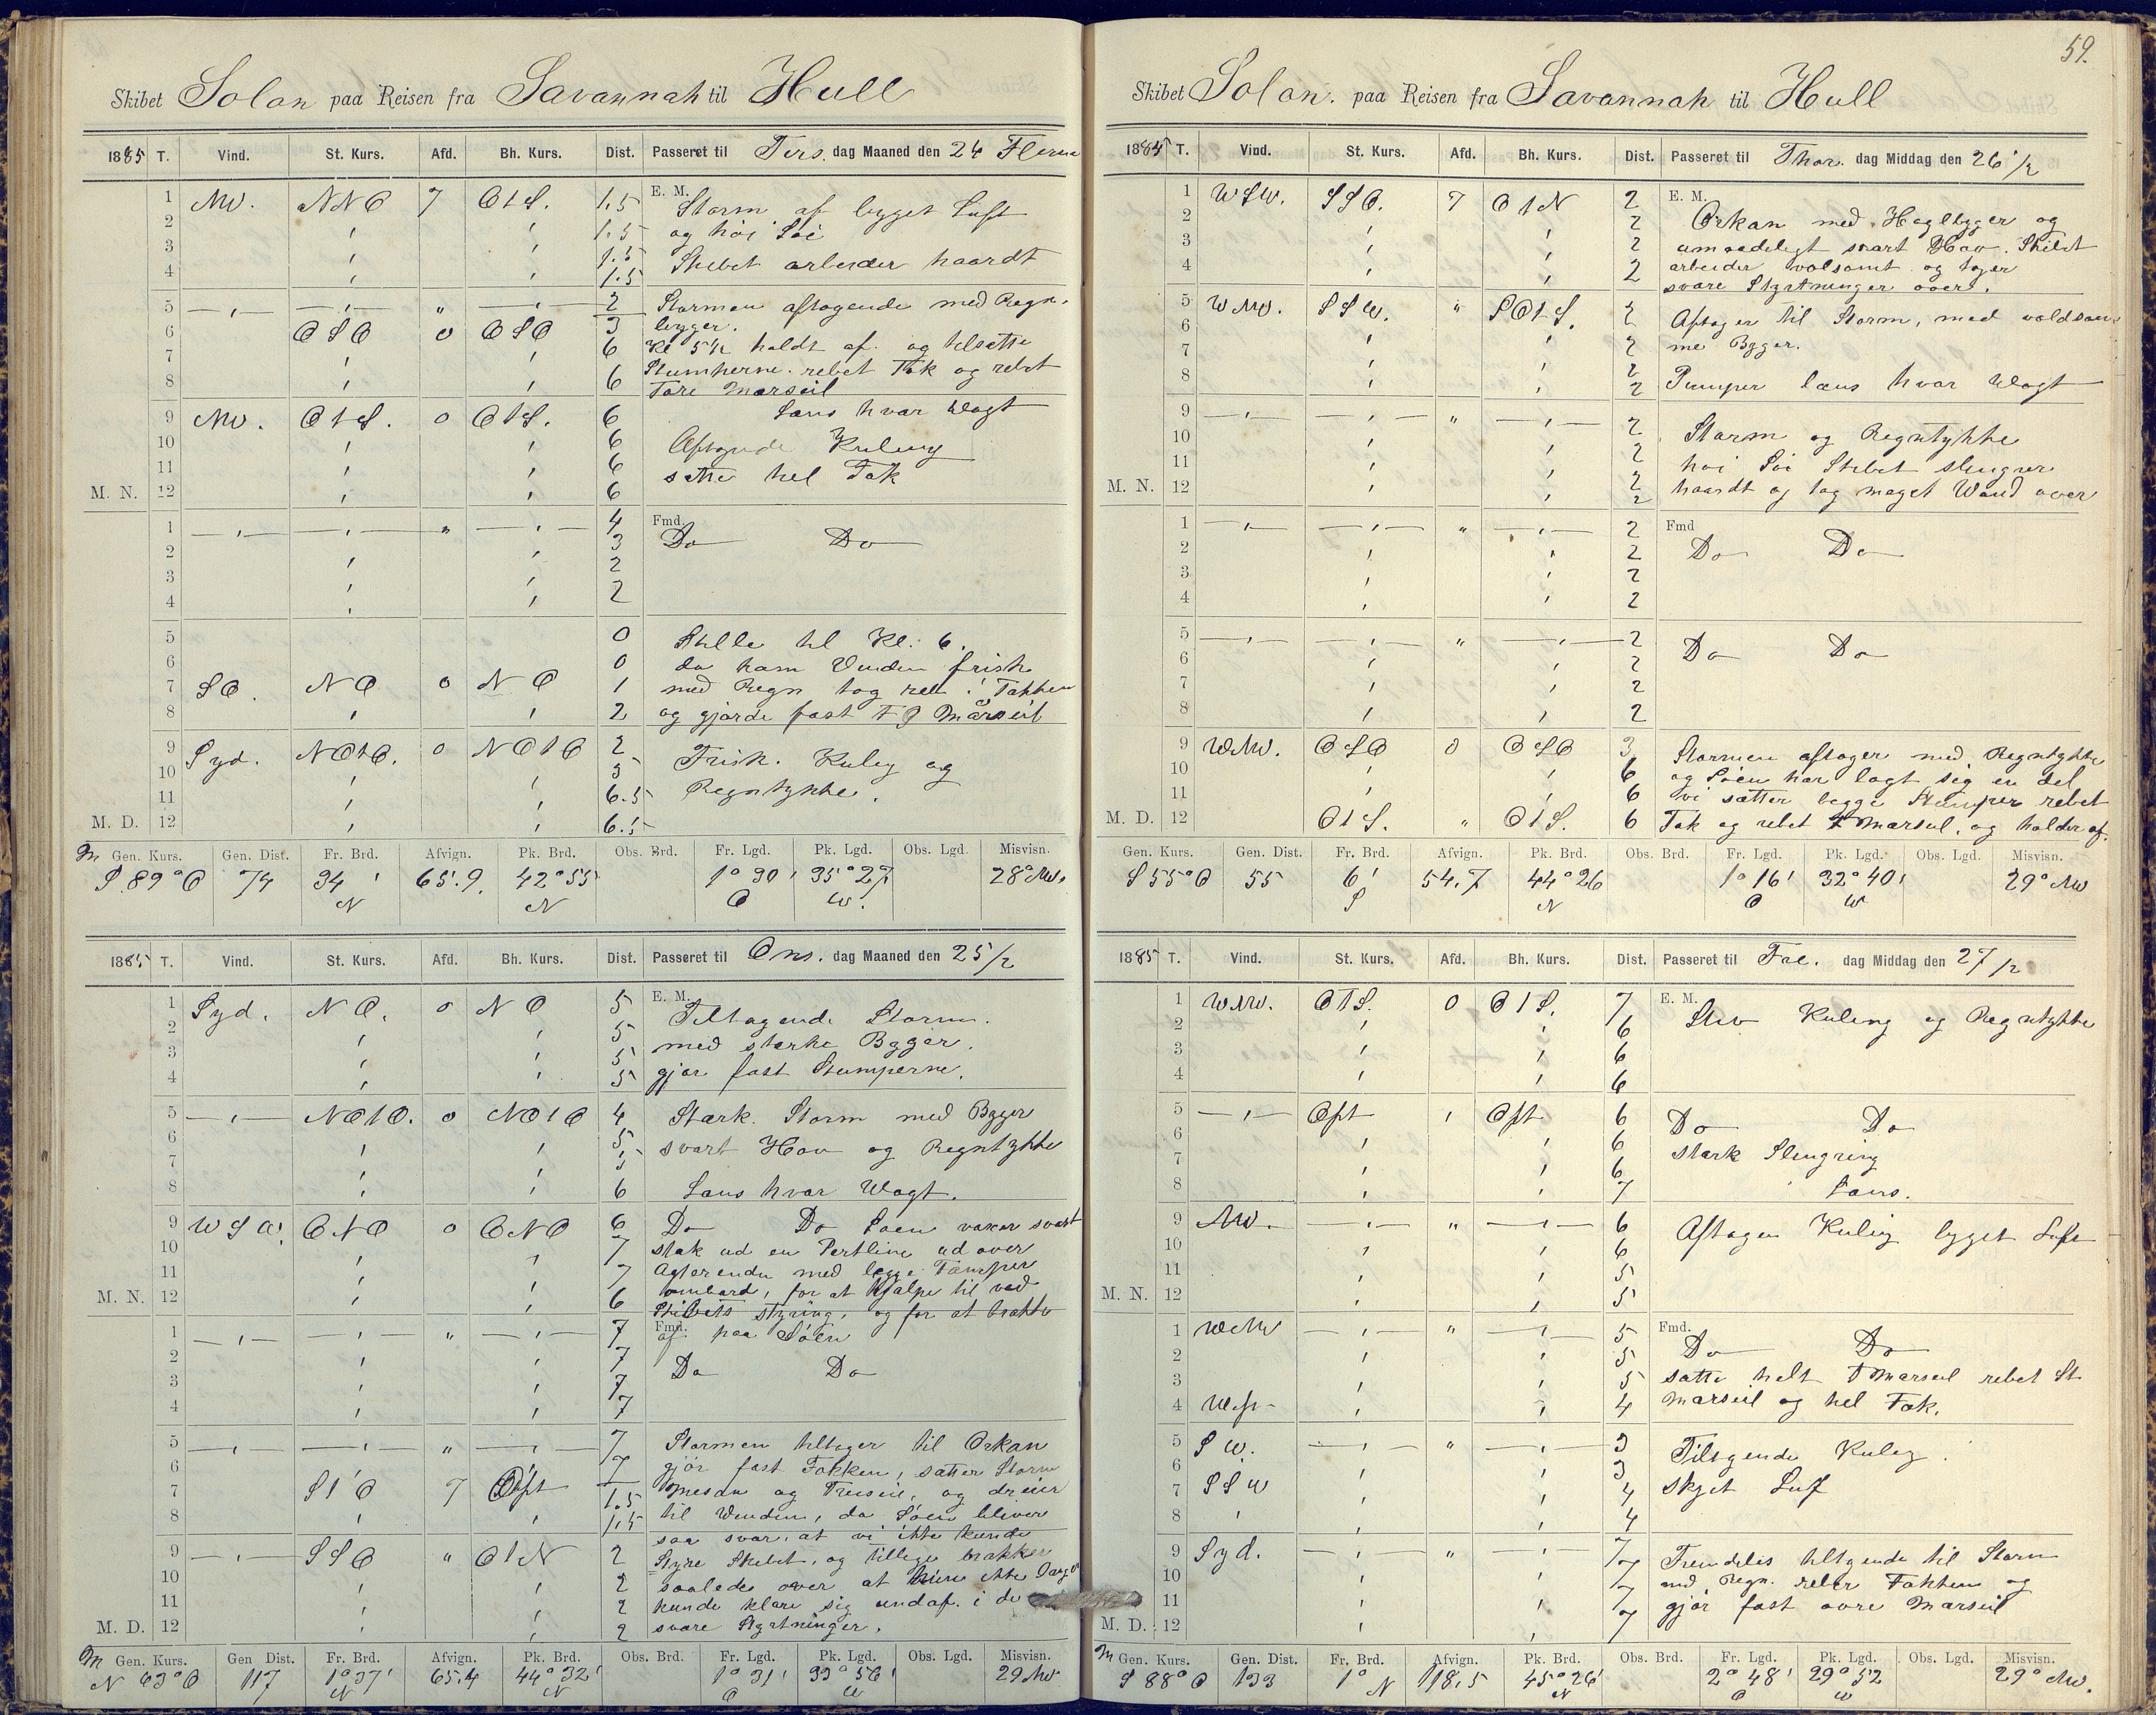 Skibet Solon paa Reisen fra Savannah til Hull
1885 T. Vind. St. Kurs. Afd. Bh. Kurs. Dist. Passeret til Tirs. dag Maaned den 24
1 NW. NNO 7 O t S. 1.5 E. M. Storm af bygget Luft
2 1.5 og høi Søe
3 1.5 Skibet arbeider haardt
4 1.5
5 2 Stormen aftagende med Regn-
6 OSO 0 OSO 3 bygger.
7 6 Kl 5½ holdt af og tilsatte
8 6 Stumperne. rebet Fok og rebet
Fore Mærseil
9 NW. O t S. 0 O t S. 6 Læns hver Vagt
10 6 Aftagende Kuling
11 6 satte hel Fok
M. N. 12 6
1 4 Fmd. Do Do
2 3
3 2
4 2
5 0 Stille til Kl. 6.
6 0 da kom Vinden frisk
7 SO. NO 0 NO 1 med Regn tog reb i Fokken
8 2 og gjorde fast F Mærseil
9 Syd. NO t O. 0 NO t O 2 Frisk. Kuling og
10 5 Regntykke.
11 6.5
M. D. 12 6.5
Gen. Kurs. Gen. Dist. Fr. Brd. Afvign. Pk. Brd. Obs. Brd. Fr. Lgd. Pk. Lgd. Obs. Lgd. Misvisn.
S 89° O 74 34' 65.9 42° 55 1° 30' 35° 27 28° NW.
N N O W.
1885 T. Vind. St. Kurs. Afd. Bh. Kurs. Dist. Passeret til Ons. dag Maaned den 25/2
1 Syd. NO. 0 NO 5 E. M. Tiltagende Storm.
2 5 med stærke Bygger.
3 5 gjør fast Stumperne.
4 5
5 NO t O. 0 NO t O 4 Stærk. Storm med Bygger
6 5 svært Hav og Regntykke
7 5
8 6 Læns hver Vagt.
9 WSW. ONO 0 ONO 6 Do Do Søen vaxer svært
10 7 stak ud en Pertline ud over
11 7 Agterenden med begge Tamper
M. N. 12 6 ombord, for at hjælpe til ved
Skibets styring, og for at brække
1 7 Fmd. af paa Søen
2 7 Do Do
3 7
4 7
5 7 Stormen tiltager til Orkan
6 7 gjør fast Fokken, sætter Storm
7 S t O 7 Ost 1.5 Mesan og Treiseil, og dreier
8 1.5 til Vinden, da Søen bliver
saa svær, at vi ikke kunde
9 SSO O t N 2 Styre Skibet, og tillige brækker
10 2 saaledes over at ikke
11 2 kunde klare sig undaf i de
M. D. 12 2 svære Styrtninger.
Gen. Kurs. Gen Dist. Fr. Brd. Afvign. Pk. Brd. Obs. Brd. Fr. Lgd. Pk. Lgd. Obs. Lgd. Misvisn.
N 63° O 117 1° 37' 65.4 44° 32' 1° 31' 33° 56' 29 NW
N N O W
59.
Skibet Solon. paa Reisen fra Savannah til Hull
1885 T. Vind. St. Kurs. Afd. Bh. Kurs. Dist. Passeret til Thor. dag Middag den 26/2
1 WSW. SSO. 7 O t N 2 E. M. Orkan med Haglbyger og
2 2 umaadeligt svært Hav. Skibet
3 2 arbeider volsomt og tager
4 2 svære Styrtninger over.
5 WNW. SSW. SO t S. 2 Aftager til Storm, med voldsom-
6 2 me Byger.
7 2
8 2 Pumper læns hver Vagt
9 2 Storm og Regntykke
10 2 høi Søe Skibet slingrer
11 2 haardt og tog meget Vand over
M. N. 12 2
1 2 Fmd Do Do
2 2
3 2
4 2
5 2 Do Do
6 2
7 2
8 2
9 WNW. OSO 0 OSO 3 Stormen aftager med Regntykke
10 6 og Søen har lagt seg en del
11 6 vi sætter begge Stumper rebet
M. D. 12 O t S. O t S. 6 Fok og rebet F Mærseil, og holder af.
Gen. Kurs. Gen. Dist. Fr. Brd. Afvign. Pk. Brd. Obs. Brd. Fr. Lgd. Pk. Lgd. Obs. Lgd. Misvisn.
S 55° O 55 6' 54.7 44° 26 1° 16' 32° 40' 29° NW
S N O W
1885 T. Vind. St. Kurs. Afd. Bh. Kurs. Dist. Passeret til Fre. dag Middag den 27/2
1 WNW. O t S. 0 O t S. 7 E. M. Stiv Kuling og Regntykke
2 6
3 6
4 6
5 Ost Ost 6 Do Do
6 6 stærk Slingring
7 6
8 7 Læns.
9 NW. 6 Aftagen Kuling bygget Luft
10 6
11 5
M. N. 12 5
1 WNW 5 Fmd. Do Do
2 5
3 5 satte helt F Mærseil rebet St
4 West 4 Mærseil og hel Fok.
5 SW. 3 Tiltagende Kuling.
6 3
7 SSW 4 skyet Luf
8 4
9 Syd. 7 Fremdeles tiltagende til Storm
10 7 med Regn. reber Fokken og
11 7 gjør fast øvre Mærseil
M. D. 12 7
Gen. Kurs. Gen. Dist. Fr. Brd. Afvign. Pk. Brd. Obs. Brd. Fr. Lgd. Pk. Lgd. Obs. Lgd. Misvisn.
S 88° O 133 1° N 118.5 45° 26' 2° 48' 29° 52 29° NW.
N O W